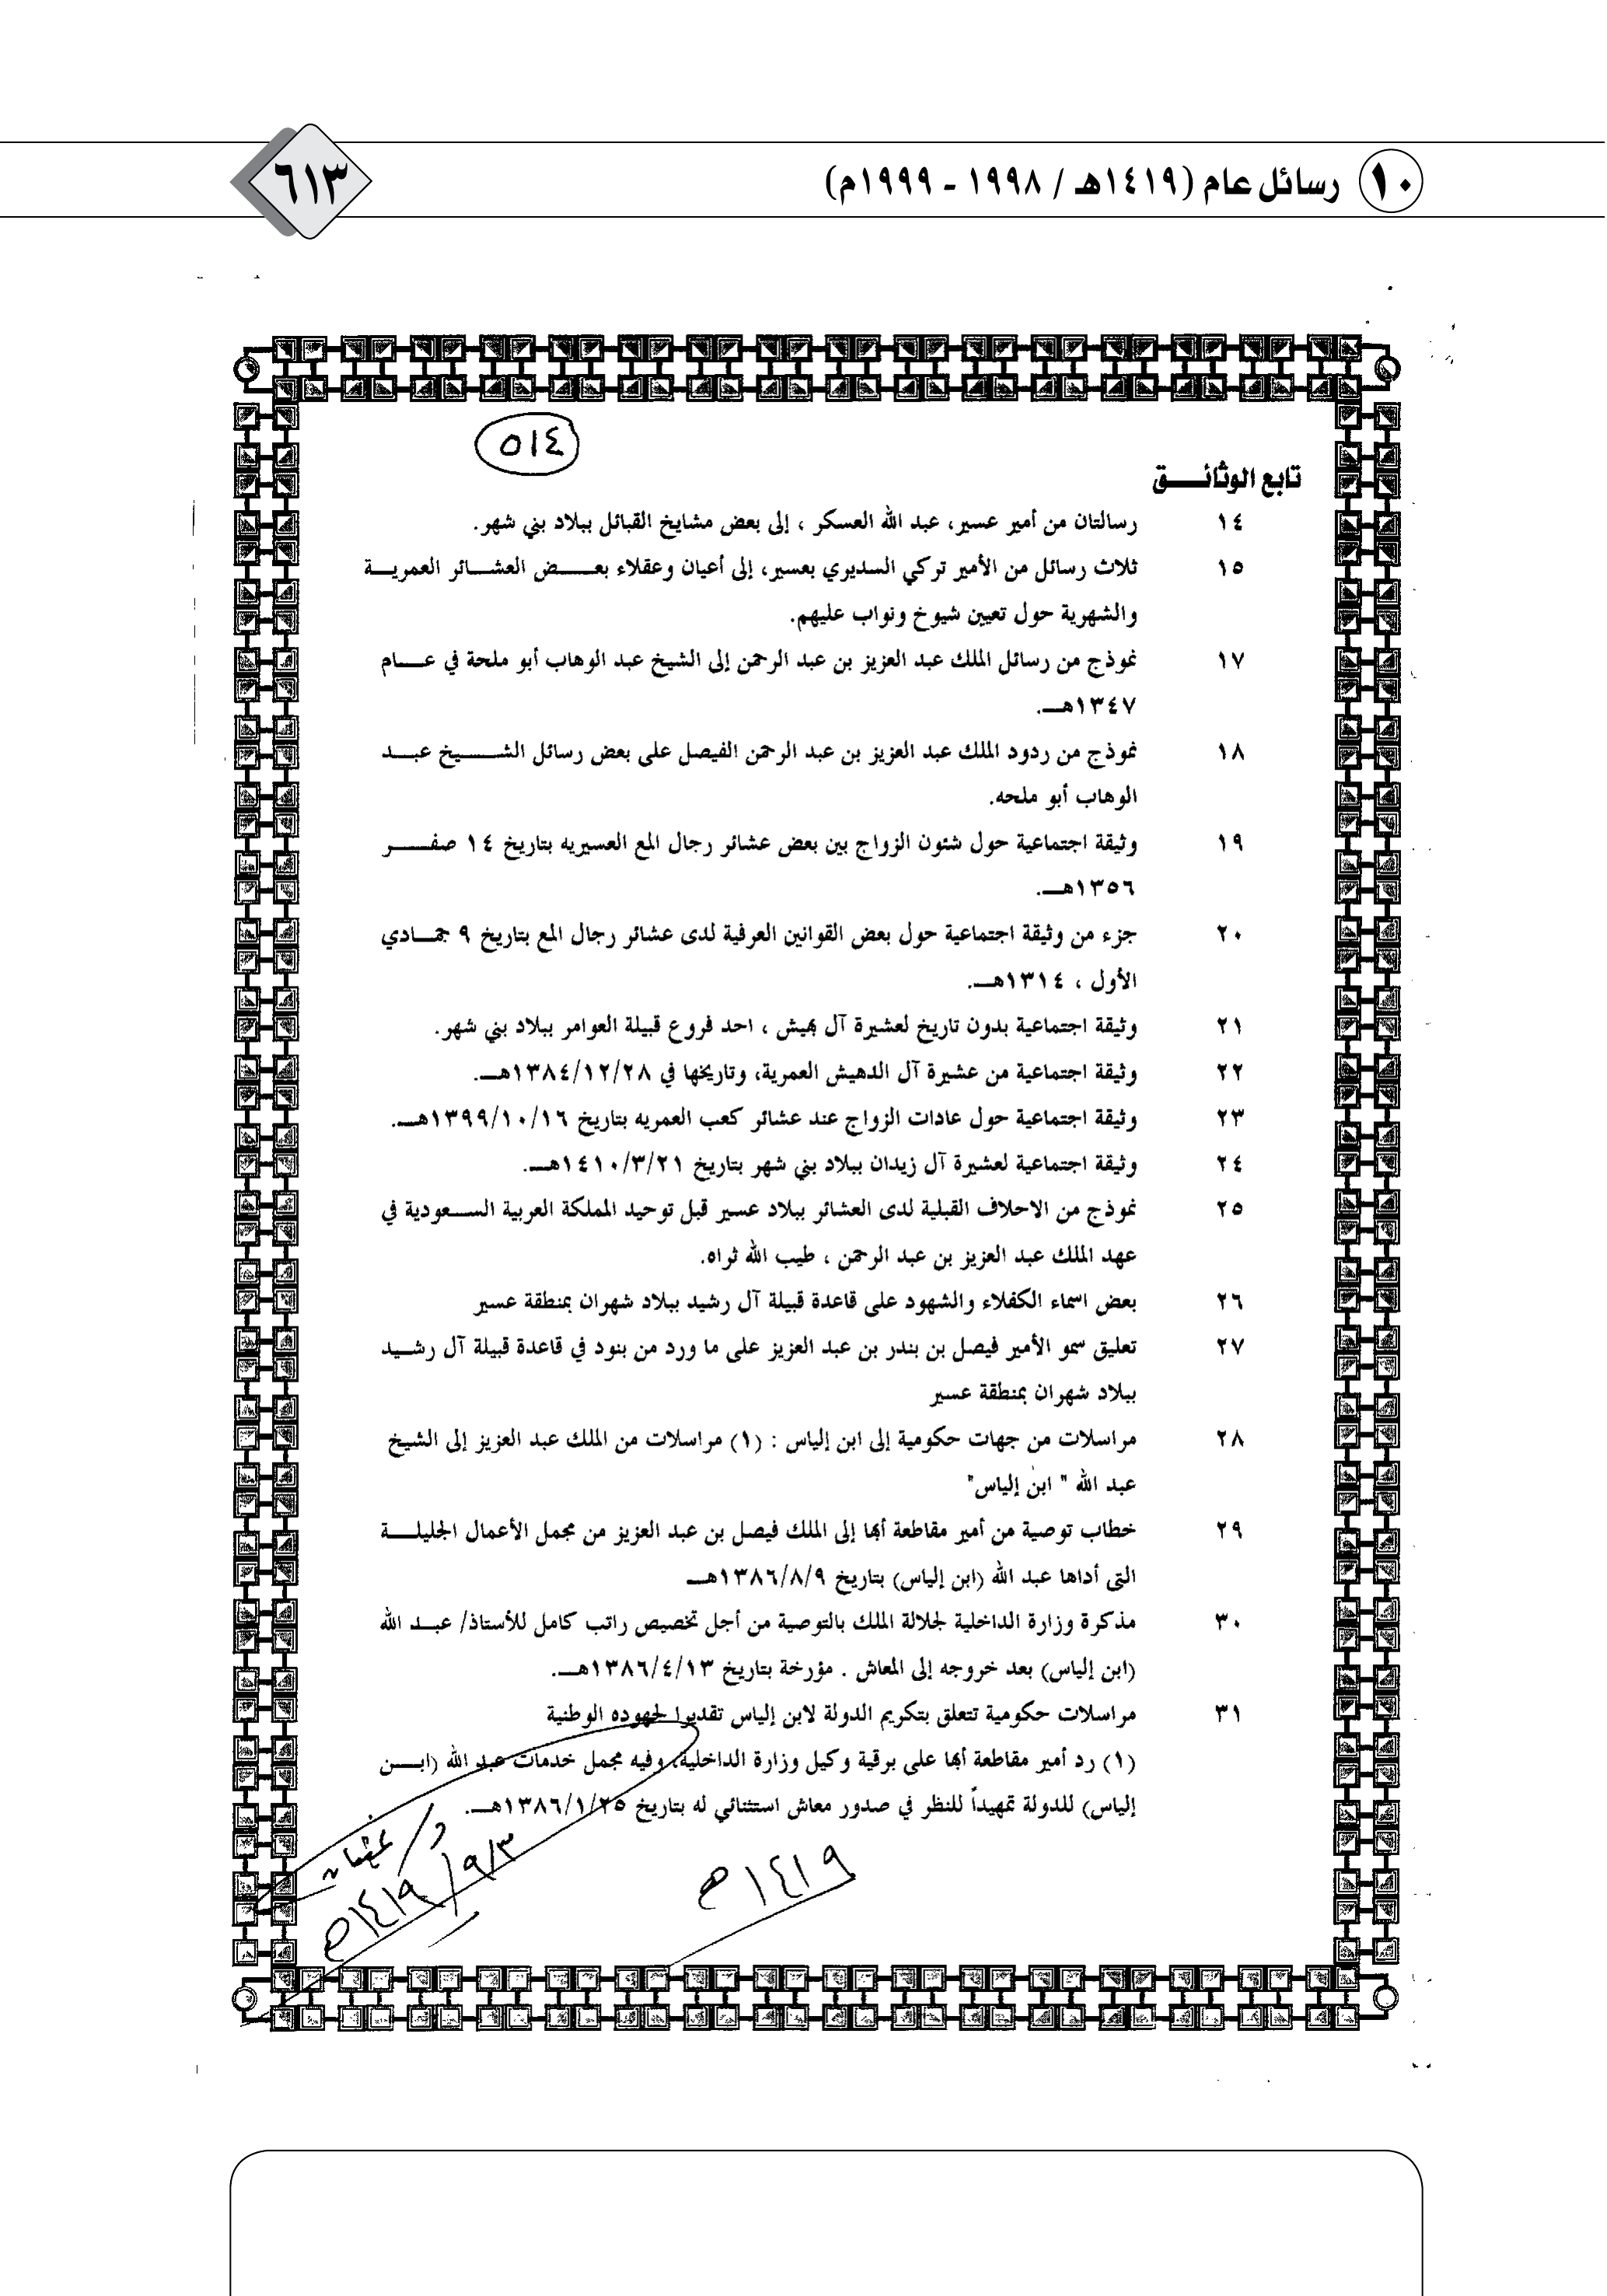 ١٠ رسائل عام (١٤١٩هـ / ١٩٩٨ - ١٩٩٩م)
٦١٣
٥١٤
تابع الوثائـــــق
١٤ رسالتان من أمير عسير، عبد الله العسكر ، إلى بعض مشايخ القبائل ببلاد بني شهر.
١٥ ثلاث رسائل من الأمير تركي السديري بعسير، إلى أعيان وعقلاء بعـــض العشـــائر العمريـــة
والشهرية حول تعيين شيوخ ونواب عليهم.
١٧ نموذج من رسائل الملك عبد العزيز بن عبد الرحمن إلى الشيخ عبد الوهاب أبو ملحة في عـــام
١٣٤٧هـــ.
١٨ نموذج من ردود الملك عبد العزيز بن عبد الرحمن الفيصل على بعض رسائل الشـــيخ عبـــد
الوهاب أبو ملحه.
١٩ وثيقة اجتماعية حول شئون الزواج بين بعض عشائر رجال المع العسيريه بتاريخ ١٤ صفـــر
١٣٥٦هـــ.
٢٠ جزء من وثيقة اجتماعية حول بعض القوانين العرفية لدى عشائر رجال المع بتاريخ ٩ جمـــادي
الأول ، ١٣١٤هـــ.
٢١ وثيقة اجتماعية بدون تاريخ لعشيرة آل بهيش ، احد فروع قبيلة العوامر ببلاد بني شهر.
٢٢ وثيقة اجتماعية من عشيرة آل الدهيش العمرية، وتاريخها في ١٣٨٤/١٢/٢٨هـــ.
٢٣ وثيقة اجتماعية حول عادات الزواج عند عشائر كعب العمريه بتاريخ ١٣٩٩/١٠/١٦هـــ.
٢٤ وثيقة اجتماعية لعشيرة آل زيدان ببلاد بني شهر بتاريخ ١٤١٠/٣/٢١هـــ.
٢٥ نموذج من الاحلاف القبلية لدى العشائر ببلاد عسير قبل توحيد المملكة العربية الســـعودية في
عهد الملك عبد العزيز بن عبد الرحمن ، طيب الله ثراه.
٢٦ بعض اسماء الكفلاء والشهود على قاعدة قبيلة آل رشيد ببلاد شهران بمنطقة عسير
٢٧ تعليق سمو الأمير فيصل بن بندر بن عبد العزيز على ما ورد من بنود في قاعدة قبيلة آل رشـــيد
ببلاد شهران بمنطقة عسير
٢٨ مراسلات من جهات حكومية إلى ابن إلياس : (١) مراسلات من الملك عبد العزيز إلى الشيخ
عبد الله " ابن إلياس"
٢٩ خطاب توصية من أمير مقاطعة أبها إلى الملك فيصل بن عبد العزيز من مجمل الأعمال الجليلـــة
التى أداها عبد الله (ابن إلياس) بتاريخ ١٣٨٦/٨/٩هـــ
٣٠ مذكرة وزارة الداخلية لجلالة الملك بالتوصية من أجل تخصيص راتب كامل للأستاذ/ عبـــد الله
(ابن إلياس) بعد خروجه إلى المعاش . مؤرخة بتاريخ ١٣٨٦/٤/١٣هـــ.
٣١ مراسلات حكومية تتعلق بتكريم الدولة لابن إلياس تقديرا لجهوده الوطنية
(١) رد أمير مقاطعة أبها على برقية وكيل وزارة الداخلية، وفيه مجمل خدمات عبد الله (ابـــن
إلياس) للدولة تمهيداً للنظر في صدور معاش استثنائي له بتاريخ ١٣٨٦/١/٢٥هـــ.
١٤١٩هـ
د/
١٤١٩/٩/٣هـ